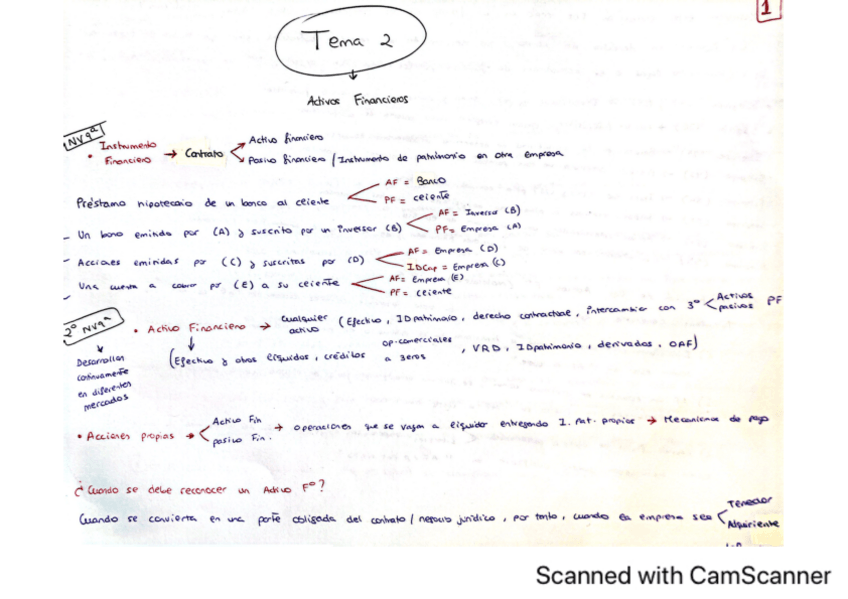 1
Tema 2
Activos Financieros
NV9ª
• Instrumento Financiero → Contrato
Activo financiero
Pasivo financiero / Instrumento de patrimonio en otra empresa
Préstamo hipotecario de un banco al cliente
AF = Banco
PF = cliente
– Un bono emitido por (A) y suscrito por un inversor (B)
AF = Inversor (B)
PF = Empresa (A)
– Acciones emitidas por (C) y suscritas por (D)
AF = Empresa (D)
IDCap = Empresa (C)
– Una cuenta a cobrar por (E) a su cliente
AF = Empresa (E)
PF = cliente
2º NV9ª
• Activo Financiero → cualquier activo (Efectivo, IDpatrimonio, derecho contractual, intercambiar con 3º
Activos
pasivos
PF
(Efectivo y otros líquidos, créditos op. comerciales a 3eros, VRD, IDpatrimonio, derivados, OAF)
Desarrollan
continuamente
en diferentes
mercados
• Acciones propias →
Activo Fin
pasivo Fin.
→ operaciones que se vayan a liquidar entregando I. Pat. propios → Mecanismo de pago
¿Cuando se debe reconocer un Activo Fº?
Cuando se convierta en una parte obligada del contrato / negocio jurídico, por tanto, cuando la empresa sea
Tenedor
Adquiriente